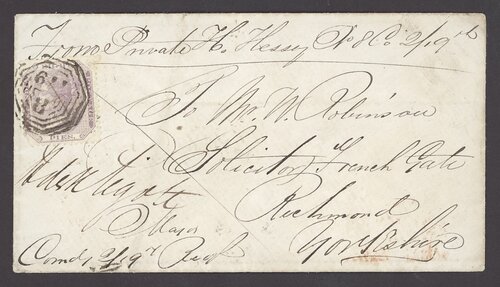 From Private H. Hessy No 8 Co 2/19th
To Mr. W. Robinson
Solicitor French Gate
Richmond
Yorkshire
Major
Comdg 2/19th Regt
PIES.